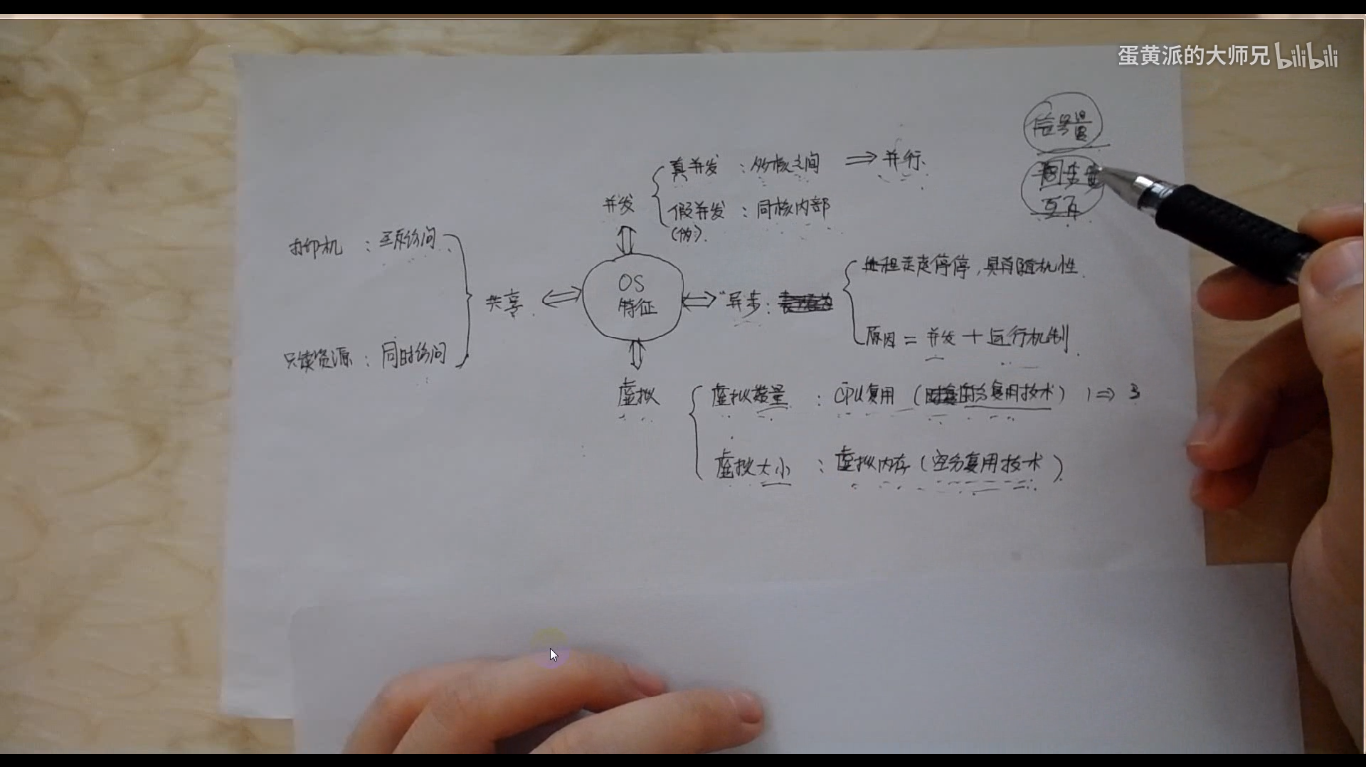 蛋黄派的大师兄 bilibili
信号量
同步
互斥
真并发：多核之间 ⇒ 并行
并发
假并发：同核内部
(伪)
打印机：互斥访问
共享
OS
特征
异步：
进程走走停停，具有随机性
只读资源：同时访问
原因 = 并发 + 运行机制
虚拟
虚拟数量：CPU复用（时分复用技术）1 ⇒ 3
虚拟大小：虚拟内存（空分复用技术）